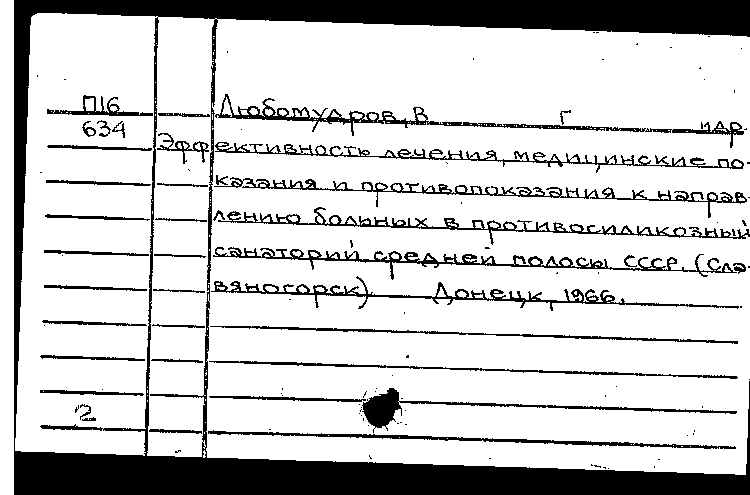 П16 Любомудров, В Г и др
634 Эффективность лечения, медицинские по-
казания и противопоказания к направ-
лению больных в противосиликозный
санаторий средней полосы СССР. (Сла-
вяногорск) Донецк, 1966.
2